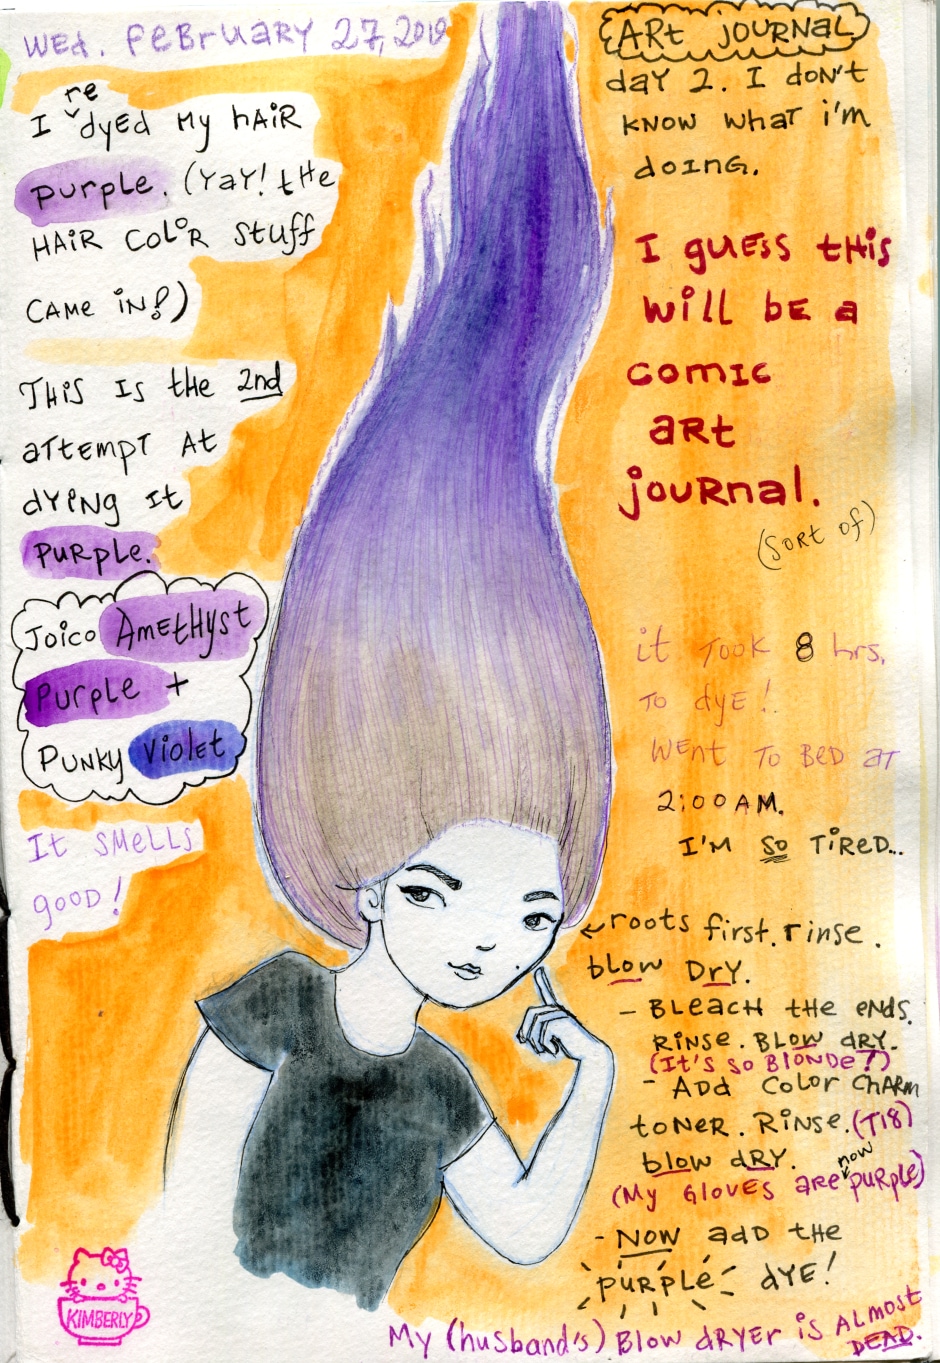 Wed. February 27, 2019
re
I dyed my hair
purple. (Yay! the
hair color stuff
came in!)
This is the 2nd
attempt at
dying it
purple.
Joico Amethyst
Purple +
Punky Violet
It smells
good!
Art journal
day 2. I don't
know what i'm
doing.
I guess this
will be a
comic
art
journal.
(sort of)
it took 8 hrs.
to dye!
went to bed at
2:00 AM.
I'm so tired...
←roots first. rinse.
blow dry.
- Bleach the ends.
Rinse. Blow dry.
(It's so blonde?)
- Add color charm
toner. Rinse. (T18)
blow dry.
now
(My gloves are purple)
- Now add the
purple dye!
My (husband's) Blow dryer is almost
dead.
KIMBERLY